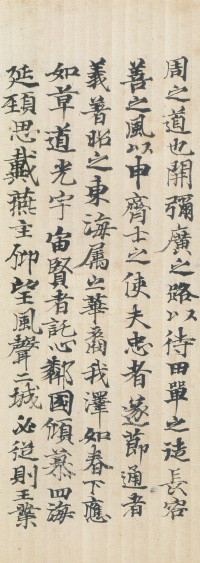 周之道也開彌廣之路以待田單之徒長容
善之風以申齊士之使夫忠者遂節通者
義著昭之東海属之華裔我澤如春下應
如草道光宇宙賢者託心鄰國傾慕四海
延頚思戴燕主仰望風聲二城必従則王業